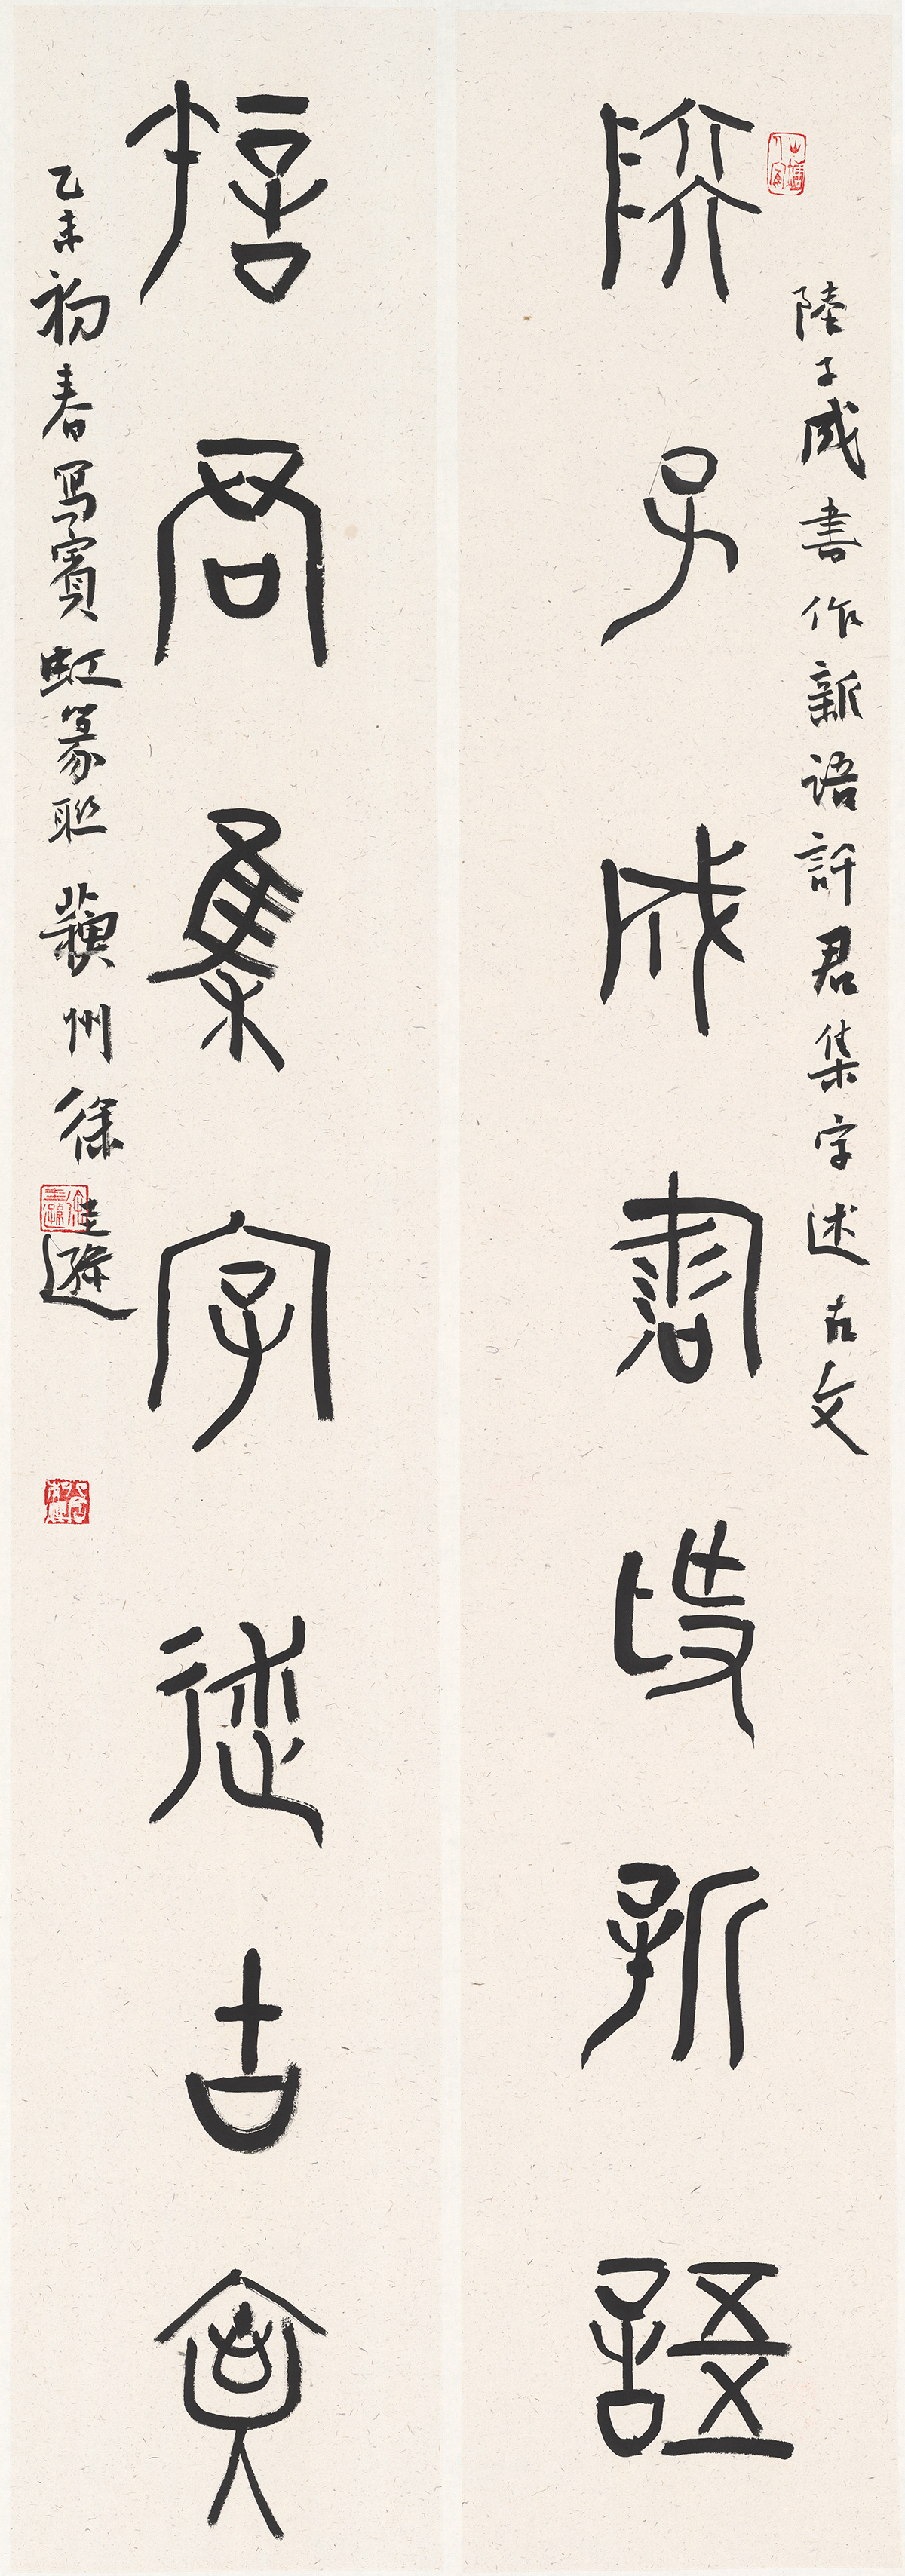 陸子成書作新語許君集字述古文
陸子成書作新語
許君集字述古文
乙未初春寫賓虹篆聯 蘇州徐圭遜